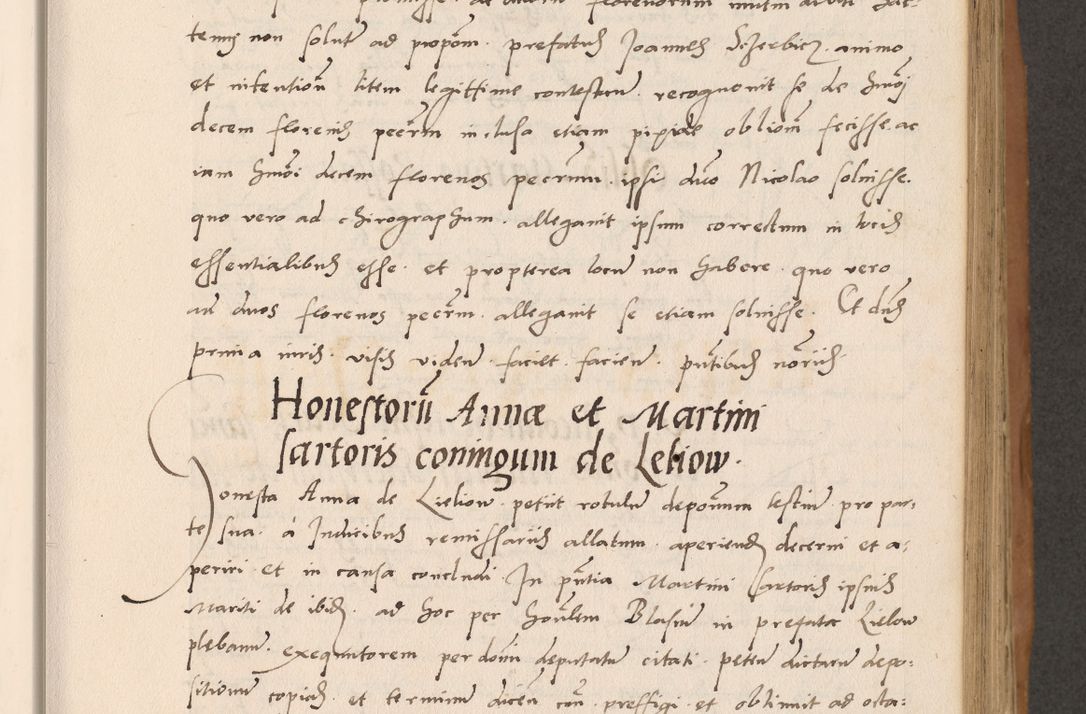 tenus non soluit ad propom. prefatus Joannes animo
et intentioñ litem legittime contestañ. recognouit se de hmõi
decem florenis pecũrm inclusa etiam pixide obliom fecisse. ac
iam hmõi decem florenos pecũrum. ipsi duo Nicolao soluisse.
quo vero ad chirographum. allegauit ipsum correctum in locis
essentialibus esse. et propterea locũ non habere. quo vero
ad duos florenos pecũrm. allegauit se etiam soluisse. Et dñs
prmia iuris. visis videñ. faciet. facieñ. pñtibus nõriis.
Honestorũ Annæ et Martini
sartoris coniugum de Leliow.
Honesta Anna de Lieliow. petiit rotulũ depoñum testiũ pro par:
te sua. à Judicibus remissariis allatum. aperiend decerni et a:
periri et in causa concludi. In pñtia Martini Sartoris ipsius
mariti de ibid. ad hoc per hoñlem Blasiũ in prefata Lielow
plebanũ. exequutorem per dõm deputatũ citati. peteñ dictarũ depo:
sitionũ copias. et terminũ diceñ cõn preffigi et obtinuit ad octa: